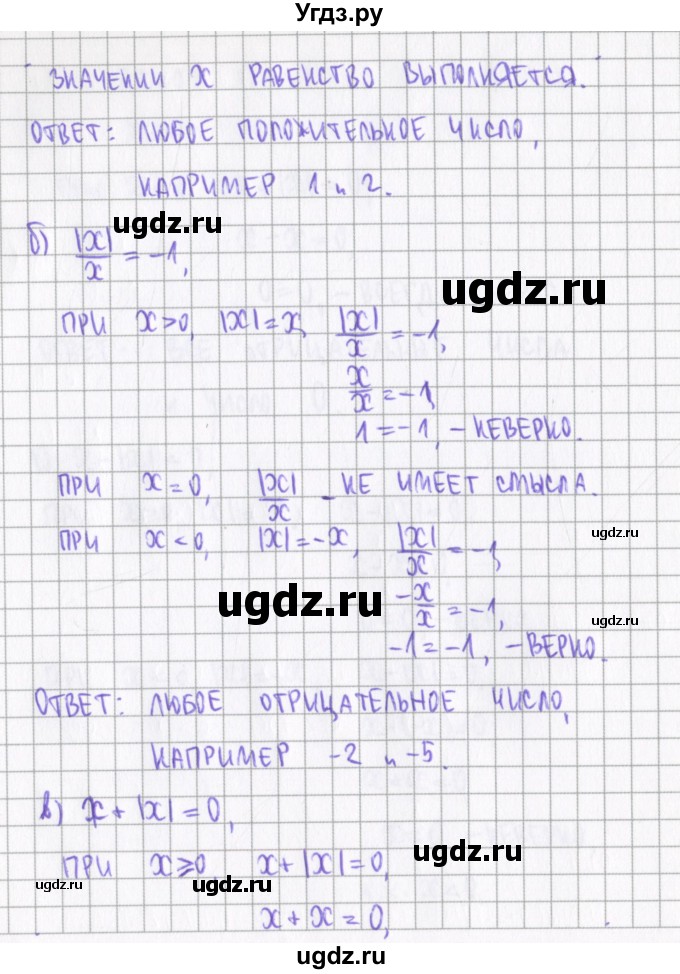 Угдз.ру
ЗНАЧЕНИИ x РАВЕНСТВО ВЫПОЛНЯЕТСЯ.
ОТВЕТ: ЛЮБОЕ ПОЛОЖИТЕЛЬНОЕ ЧИСЛО,
НАПРИМЕР 1 и 2.
ugdz.ru
б) |x|/x = -1,
ugdz.ru
ПРИ x>0, |x|=x, |x|/x = -1,
x/x = -1,
1 = -1, - НЕВЕРНО.
ПРИ x=0, |x|/x - НЕ ИМЕЕТ СМЫСЛА.
ugdz.ru
ПРИ x<0, |x|=-x, |x|/x = -1,
ugdz.ru
-x/x = -1,
-1 = -1, - ВЕРНО.
ОТВЕТ: ЛЮБОЕ ОТРИЦАТЕЛЬНОЕ ЧИСЛО,
НАПРИМЕР -2 и -5.
в) x + |x| = 0,
ugdz.ru
ПРИ x⩾0, x+|x|=0,
ugdz.ru
ugdz.ru
x + x = 0,
ugdz.ru